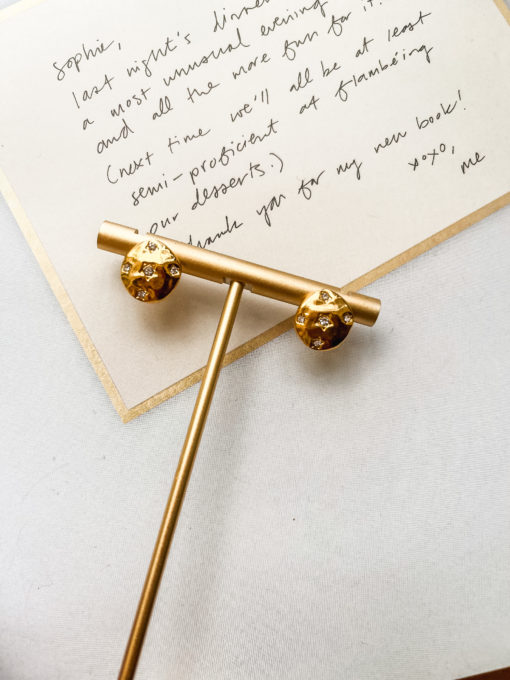 sophie,
last night's dinner
a most unusual evening
and all the more fun for it!
(next time we'll all be at least
semi-proficient at flambéing
our desserts.)
thank you for my new book!
xoxo,
me